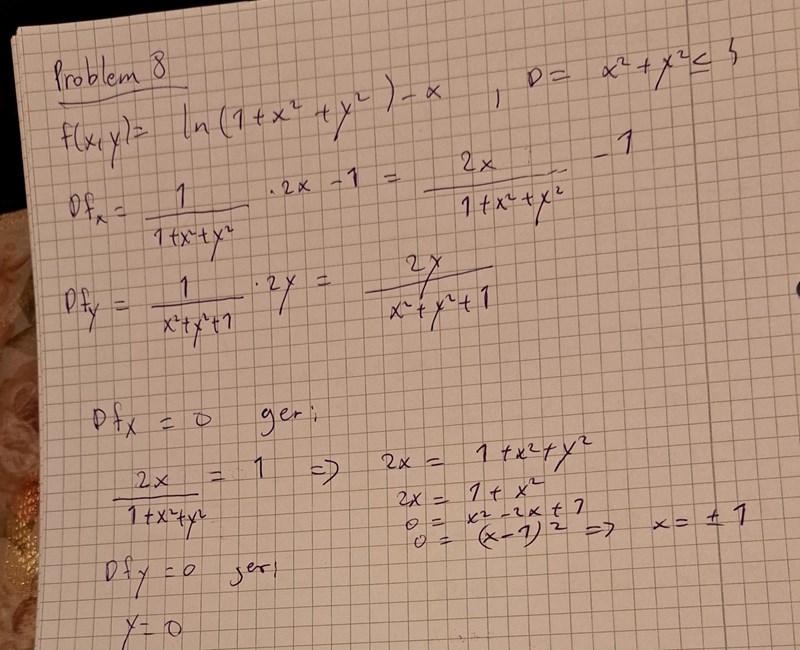 Problem 8
f(x,y)= ln(1+x²+y²)-x , D= x²+y²≤
Dfx = 1/(1+x²+y²) · 2x - 1 = 2x/(1+x²+y²) - 1
Dfy = 1/(x²+y²+1) · 2y = 2y/(x²+y²+1)
Dfx = 0 ger:
2x/(1+x²+y²) = 1 => 2x = 1+x²+y²
2x = 1+x²
0 = x²-2x+1
0 = (x-1)² => x = ±1
Dfy = 0 ger:
y=0